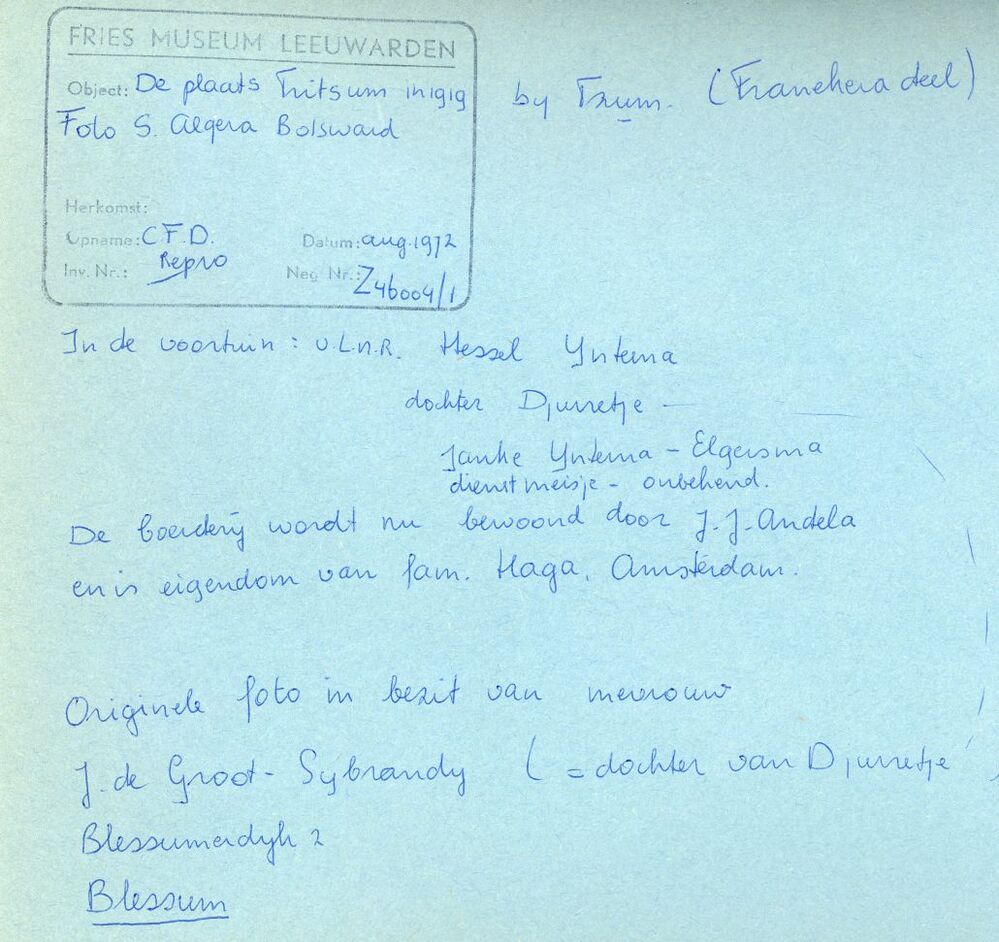 FRIES MUSEUM LEEUWARDEN
Object: De plaats Fritsum in 1919 by Tzum. (Franekeradeel)
Foto S. Algera Bolsward
Herkomst:
Opname: C.F.D. Datum: aug. 1972
Repro
Inv. Nr.: Neg Nr.: Z46004/1
In de voortuin : v.L.n.R. Hessel Yntema
dochter Djurretje —
Janke Yntema - Elgersma
dienstmeisje - onbekend.
De boerderij wordt nu bewoond door J.J. Andela
en is eigendom van fam. Haga, Amsterdam.
Originele foto in bezit van mevrouw
J. de Groot - Sybrandy ( = dochter van Djurretje )
Blessumerdyk 2
Blessum